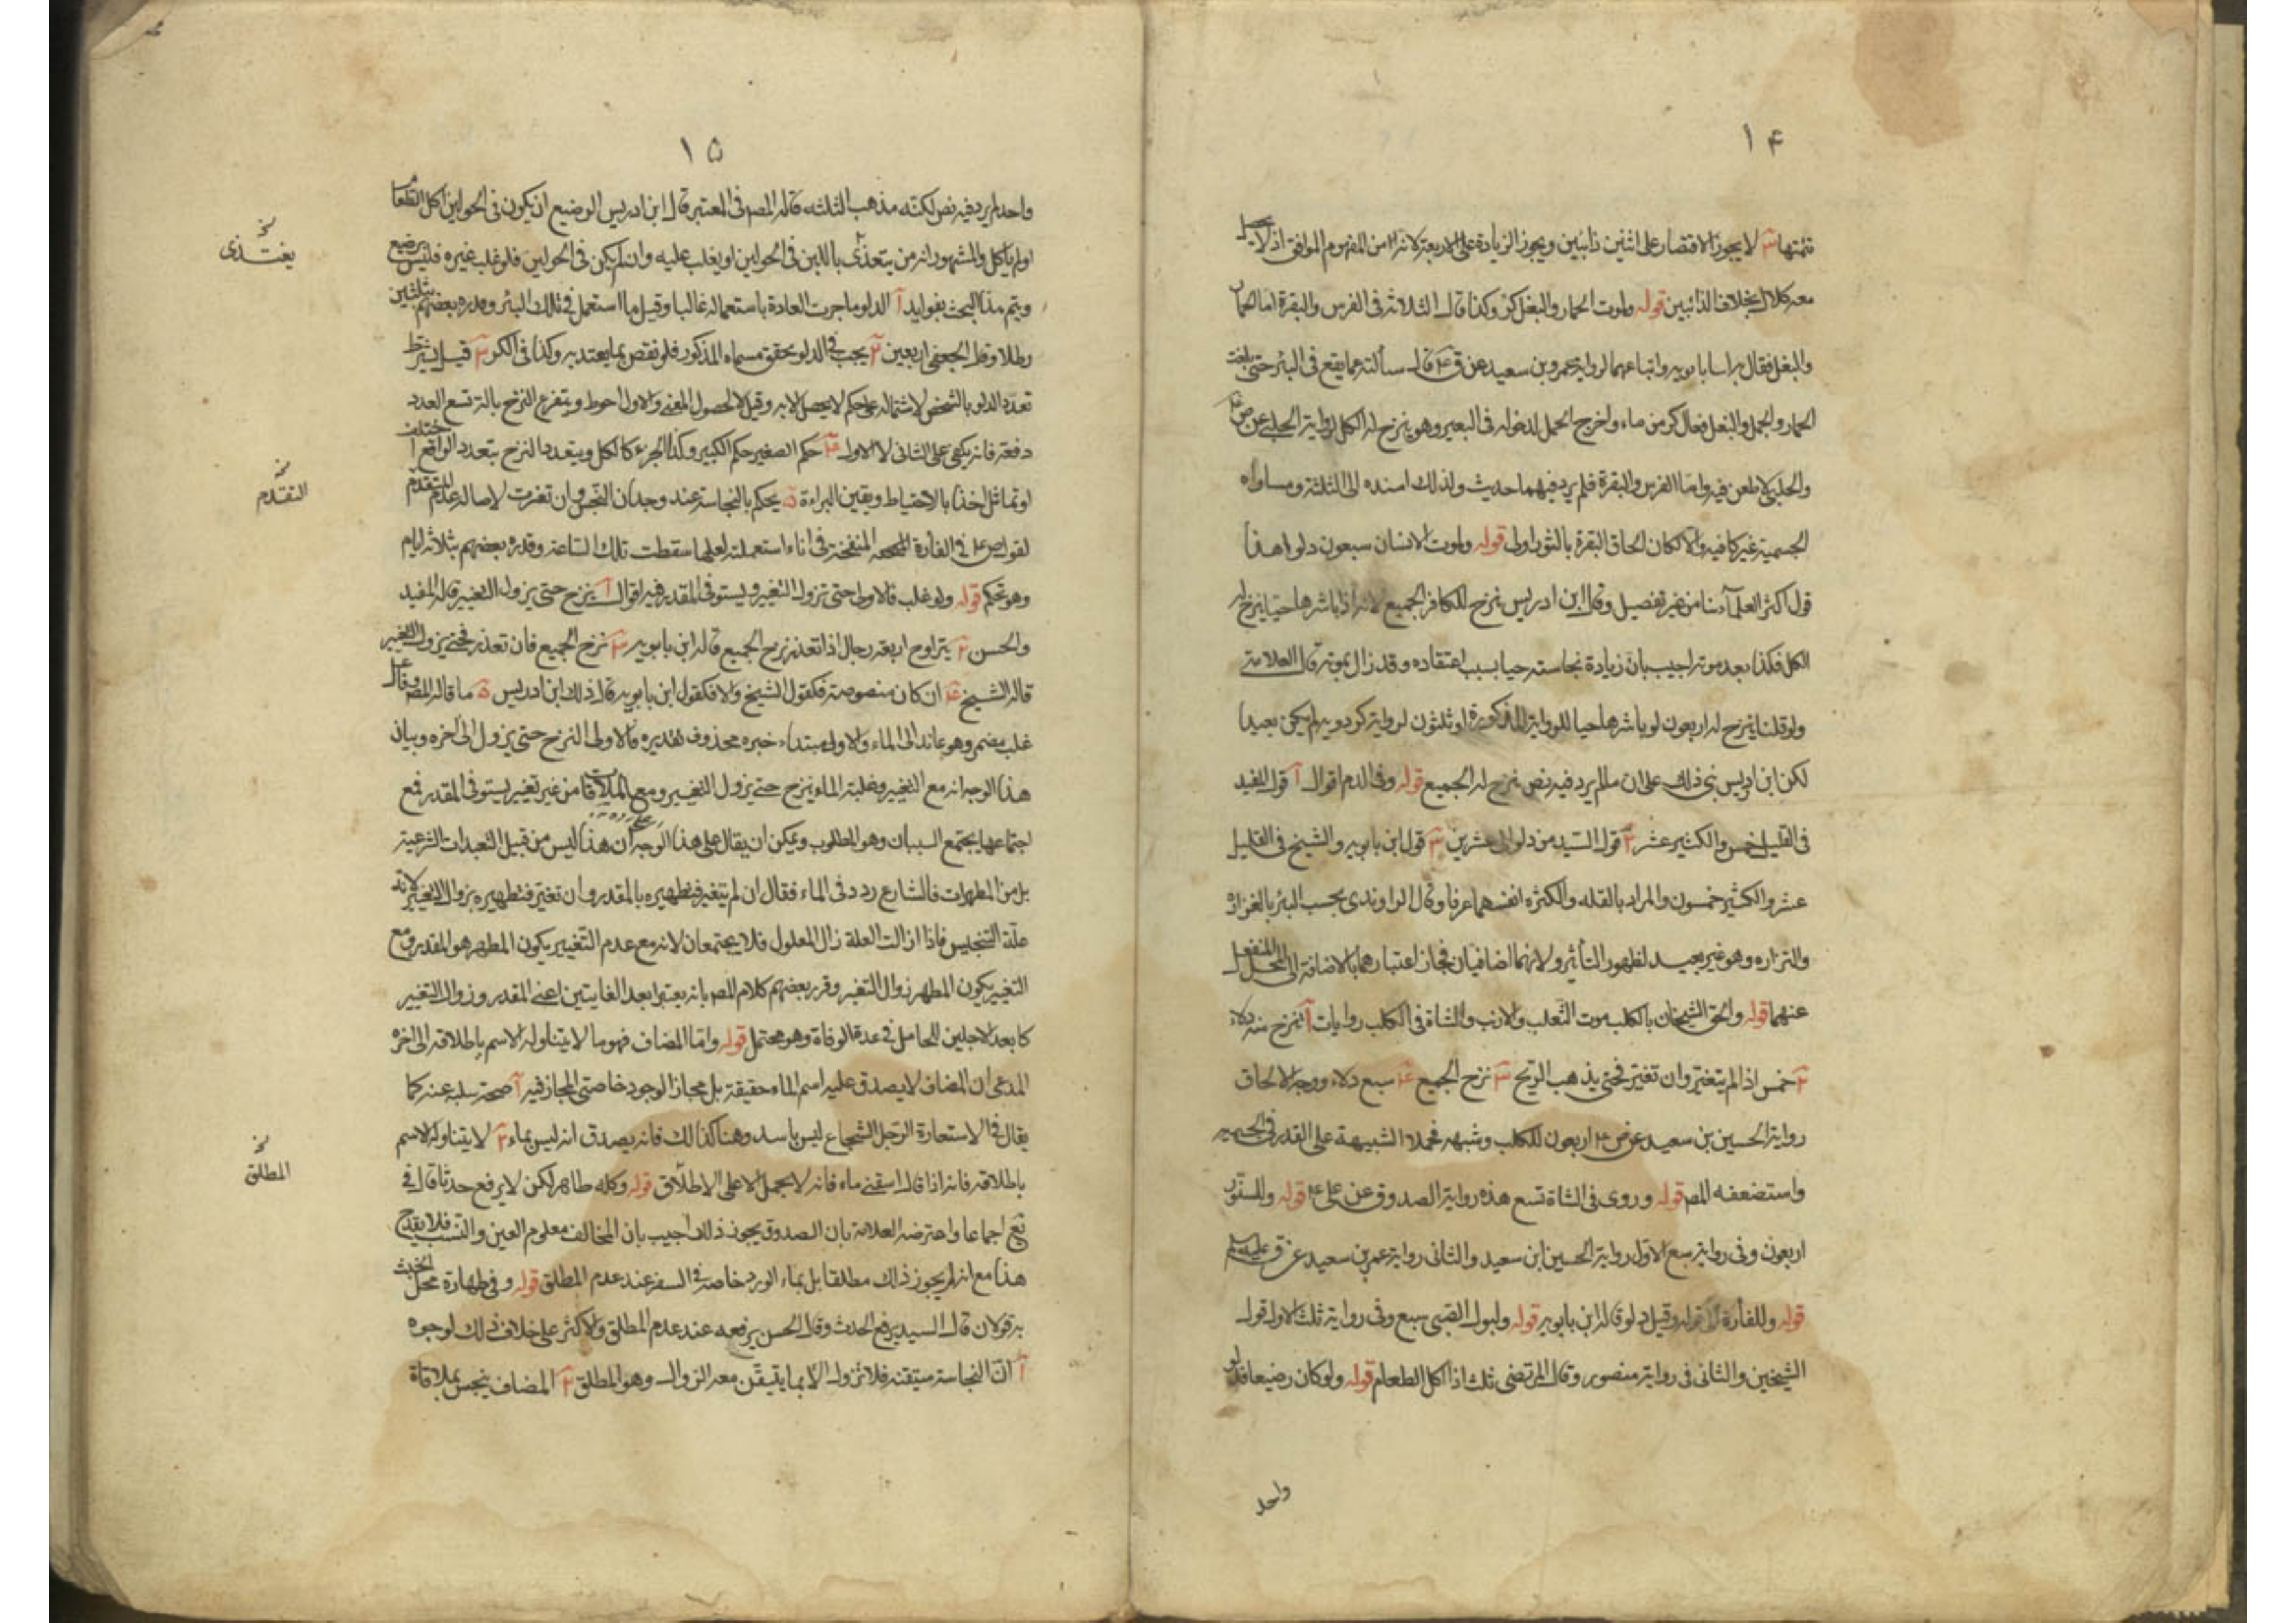 ١٤
تتمتها ٣ لا يجوز الاقتصار على اثنين دائبين ويجوز الزيادة على الاربعة لانه من المفهوم الموافق اذ لا يحصل
معه كلال بخلاف الدائبين قوله ولموت الحمار والبغل كر وكذا قال الثلاثة في الفرس والبقرة اما الحمار
والبغل فقال به ابن بابويه واتباعهما لرواية عمرو بن سعيد عن ق ع قال سألته عما يقع في البئر حتى بلغت
الحمار والجمل والبغل فقال كر من ماء واخرج الجمل لدخوله في البعير وهو ينزح له الكل لرواية الحلبي عن ص ع
والحلبي لا طعن فيه واما الفرس والبقرة فلم يرد فيهما حديث ولذلك اسنده الى الثلثة ومساواه
الجسمية غير كافيه والا لكان الحاق البقرة بالثور اولى قوله ولموت الانسان سبعون دلوا هذا
قول اكثر العلماء منا من غير تفصيل وقال ابن ادريس ينزح للكافر الجميع لانه اذا باشرها حيا ينزح له
الكل فكذا بعد موته اجيب بان زيادة نجاسته حيا بسبب اعتقاده وقد زال بموته قال العلامة
ولو قلنا ينزح له اربعون لو باشرها حيا للرواية المذكورة او ثلثون لرواية كردويه لم يكن بعيدا
لكن ابن ادريس بنى ذلك على ان ما لم يرد فيه نص ينزح له الجميع قوله وفي الدم اقوال آ قول المفيد
في القليل خمس والكثير عشر ٢ قول السيد من دلو الى عشرين ٣ قول ابن بابويه والشيخ في القليل
عشر والكثير خمسون والمراد بالقله والكثره انفسهما عرفا وقال الراوندي بحسب البئر بالغزاره
والنزاره وهو غير بعيد لظهور التأثير ولانهما اضافيان فجاز اعتبارهما بالاضافة الى المحل المنفعل
عنهما قوله والحق الشيخان بالكلب موت الثعلب والارنب والشاة في الكلب روايات آ ينزح منه دلاء
٢ خمس اذا لم يتغير وان تغير فحتى يذهب الريح ٣ نزح الجميع ٤ سبع دلاء ووجه الالحاق
رواية الحسين بن سعيد عن ص ع اربعون للكلب وشبهه فحملا الشبيهة على القدر في الجسميه
واستضعفه المص قوله وروى في الشاة تسع هذه رواية الصدوق عن علي ع قوله وللسنور
اربعون وفي رواية سبع الاول رواية الحسين ابن سعيد والثاني رواية عمر بن سعيد عن ق عليه السلم
قوله وللفأرة قوله وقيل دلو قاله ابن بابويه قوله ولبول الصبي سبع وفي رواية ثلث الاول قول
الشيخين والثاني في رواية منصور وقال المرتضى ثلث اذا اكل الطعام قوله ولو كان رضيعا فدلو
واحد
١٥
واحد لم يرد فيه نص لكنه مذهب الثلثه قاله المص في المعتبر قال ابن ادريس الرضيع ان يكون في الحولين اكل الطعام
او لم ياكل والمشهور انه من يتغذى باللبن في الحولين او يغلب عليه وان لم يكن في الحولين فلو غلب غيره فليس برضيع
ويتم هذا البحث بفوايد آ الدلو ما جرت العادة باستعماله غالبا وقيل ما استعمل في تلك البئر وقدره بعضهم بثلثين
رطلا وقال الجعفي اربعين ٢ يجب في الدلو تحقق مسماه المذكور فلو نقص بما يعتد به وكذا في الكر ٣ قيل يشترط
تعدد الدلو بالشخص لاشتماله على حكم لا يحصل الا به وقيل لا لحصول المعنى والاول احوط ويتفرع النزح بالة تسع العدد
دفعة فانه يكفي على الثاني لا الاول ٤ حكم الصغير حكم الكبير وكذا الجزء كالكل ويتعدد النزح بتعدد الواقع اختلف
او تماثل اخذا بالاحتياط ويقين البراءة ٥ يحكم بالنجاسة عند وجدان النجس وان تغيرت لاصالة عدم المتقدم
لقول ص ع في الفأرة المنفخة في اناء استعملته لعلها سقطت تلك الساعة وقدره بعضهم بثلاثة ايام
وهو تحكم قوله ولو غلب فالاولى حتى تزول التغير ويستوفى المقدر فيه اقوال آ ينزح حتى يزول التغير قاله المفيد
والحسن ٢ يتراوح اربعة رجال اذا تعذر نزح الجميع قاله ابن بابويه ٣ نزح الجميع فان تعذر فحتى يزول التغير
قاله الشيخ ٤ ان كان منصوصة فكقول الشيخ والا فكقول ابن بابويه قال ذلك ابن ادريس ٥ ما قاله المص وفاعل
غلب مضمر وهو عائد الى الماء والاولى مبتداء خبره محذوف تقديره فالاولى النزح حتى يزول الى اخره وبيان
هذا الوجه انه مع التغير وغلبة الماء ينزح حتى يزول التغيير ومع الملاقات من غير تغيير يستوفى المقدر فمع
اجتماعها يجتمع السببان وهو المطلوب ويمكن ان يقال على هذا الوجه ان هذا ليس من قبيل التعبدات الشرعية
بل من المطهرات فالشارع ردد في الماء فقال ان لم يتغير فتطهيره بالمقدر وان تغير فتطهيره بزوال التغير لانه
علة التنجيس فاذا زالت العلة زال المعلول فلا يجتمعان لانه مع عدم التغيير يكون المطهر هو المقدر ومع
التغيير يكون المطهر زوال التغير وقرر بعضهم كلام المص بانه يعتبر ابعد الغايتين اعني المقدر وزوال التغيير
كابعد الاجلين للحامل في عدة الوفاة وهو محتمل قوله واما المضاف فهو ما لا يتناوله الاسم باطلاقه الى اخره
المدعى ان المضاف لا يصدق عليه اسم الماء حقيقة بل مجازا لوجود خاصتي المجاز فيه آ صحة سلبه عنه كما
يقال في الاستعارة الرجل الشجاع ليس باسد وهنا كذلك فانه يصدق انه ليس بماء ٢ لا يتناوله الاسم
باطلاقه فانه اذا قال اسقني ماء فانه لا يحمل الا على الاطلاق قوله وكله طاهر لكن لا يرفع حدثا قال في
يع اجماعا واعترضه العلامة بان الصدوق يجوز ذلك اجيب بان المخالف معلوم العين والنسب فلا يقدح
هذا مع انه لم يجوز ذلك مطلقا بل بماء الورد خاصة في السفر عند عدم المطلق قوله وفي طهارة محل الخبث
به قولان قال السيد يرفع الحدث وقال الحسن يرفعه عند عدم المطلق والاكثر على خلاف ذلك لوجوه
آ ان النجاسة متيقنة فلا تزول الا بما يتيقن معه الزوال وهو المطلق ٢ المضاف ينجس بملاقاة
نخ
يغتذى
نخ
التقدم
نخ
المطلق